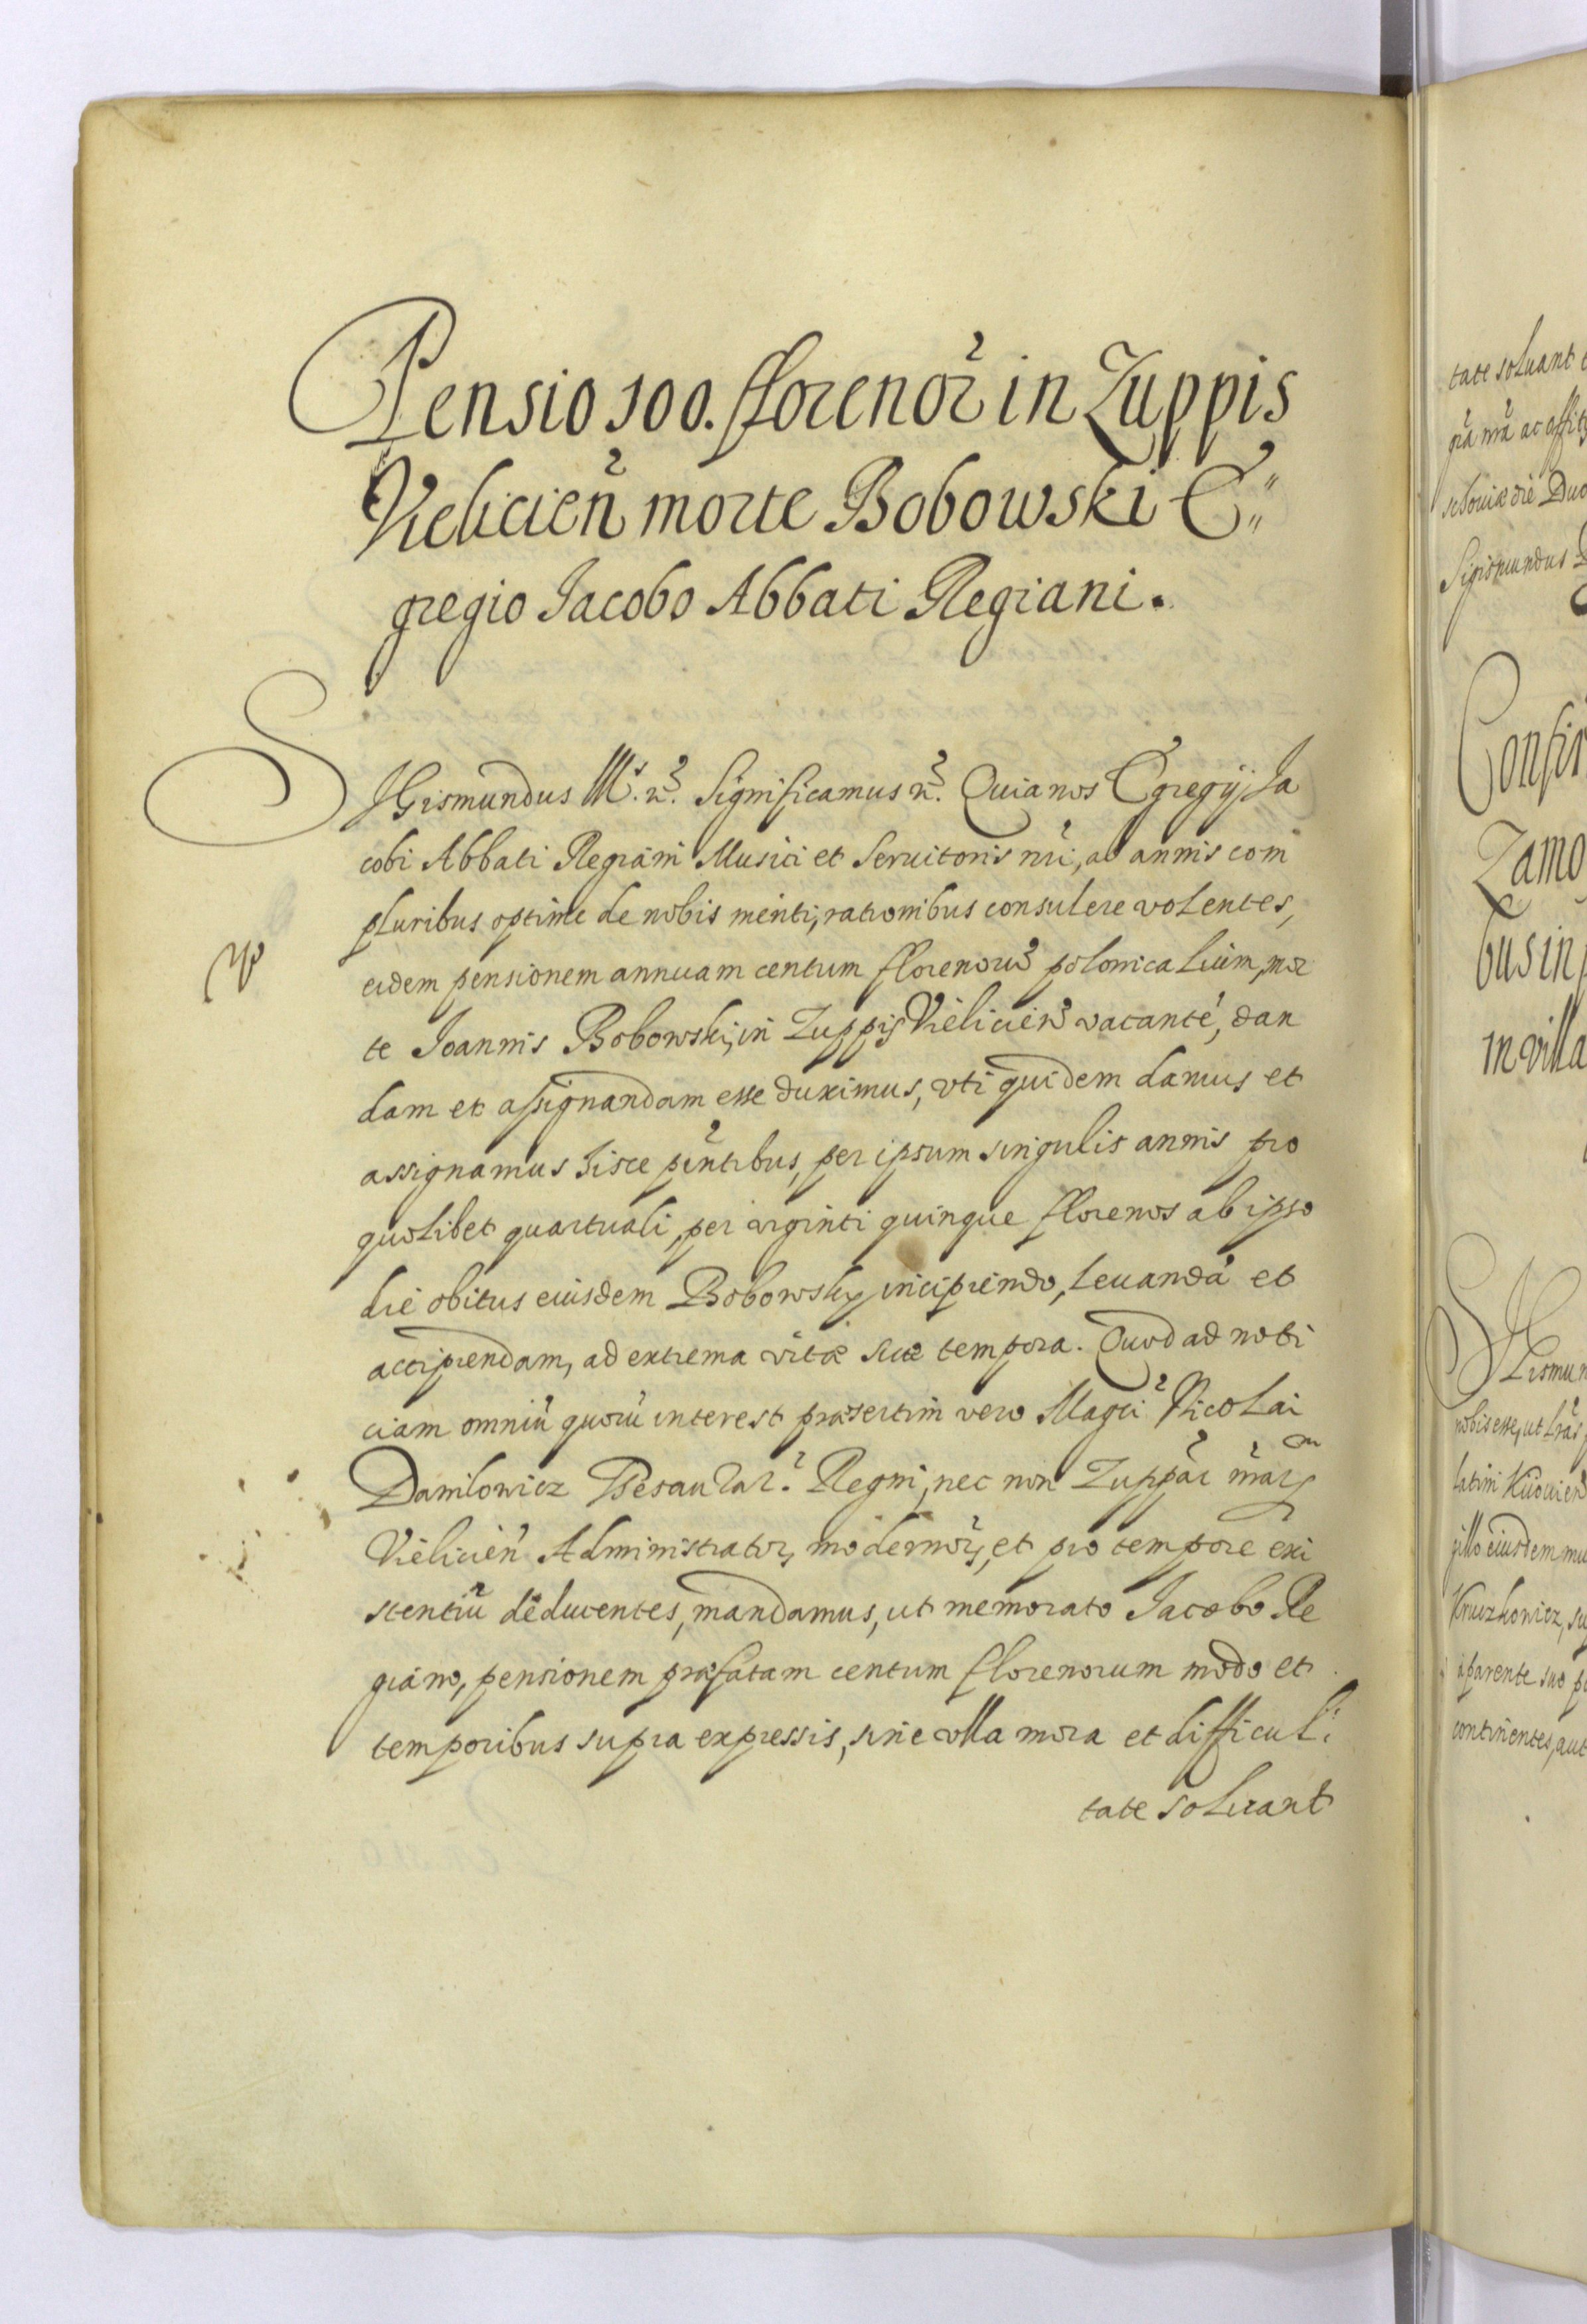 Pensio 100. florenor̃ in Zuppis
Vielicień morte Bobowski E"
gregio Jacobo Abbati Regiani.
SIGismundus IIIs. ñ. Significamus ñ. Quia nos Egregij Ja
cobi Abbati Regiani Musici et Seruitoris nri, ab annis com
pluribus optime de nobis meriti, rationibus consulere volentes,
eidem pensionem annuam centum florenorũ polonicalium, mor
te Joannis Bobowski, in Zuppis Vielicień vacantē, dan
dam et assignandam esse duximus, vti quidem damus et
assignamus hisce pñtibus, per ipsum singulis annis pro
quolibet quartuali, per viginti quinque florenos ab ipso
die obitus eiusdem Bobowsky incipiendo, leuandã et
accipiendam, ad extrema vitæ suæ tempora. Quod ad noti
ciam omniũ quorũ interest præsertim vero Magci Nicolai
Danilowicz Thesaurar. Regni, nec non Zuppar̃ nrar̃
Vielicień Administrator, modernor, et pro tempore exi
stentiũ deducentes, mandamus, ut memorato Jacobo Re
giano, pensionem præfatam centum florenorum modo et
temporibus supra expressis, sine vlla mora et difficul
tate soluant
tate soluant
grã nrã ac
die Duo
Sigismundus
Confir
Zamo
bus in
in villa
SIGismun
nobis esse, ut Lrãs
latini Kiiouień
gillo eiusdem mu
Kruszkowicz, su
à parente suo
continentes, aut